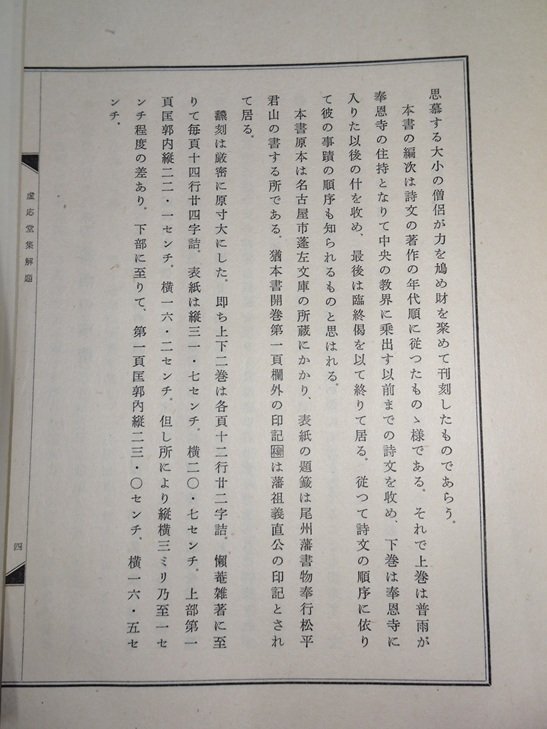 思慕する大小の僧侶が力を鳩め財を聚めて刊刻したものであらう。
本書の編次は詩文の著作の年代順に從つたものゝ様である。それで上巻は普雨が
奉恩寺の住持となりて中央の教界に乗出す以前までの詩文を收め、下巻は奉恩寺に
入りた以後の什を收め、最後は臨終偈を以て終りて居る。從つて詩文の順序に依り
て彼の事蹟の順序も知られるものと思はれる。
本書原本は名古屋市蓬左文庫の所蔵にかかり、表紙の題簽は尾州藩書物奉行松平
君山の書する所である。猶本書開巻第一頁欄外の印記は藩祖義直公の印記とされ
て居る。
飜刻は厳密に原寸大にした。即ち上下二巻は各頁十二行廿二字詰。懶菴雑著に至
りて毎頁十四行廿四字詰。表紙は縦三一・七センチ。横二〇・七センチ。上部第一
頁匡郭内縦二二・一センチ。横一六・二センチ。但し所により縦横三ミリ乃至一セ
ンチ程度の差あり。下部に至りて、第一頁匡郭内縦二三・〇センチ、横一六・五セ
ンチ。
虚応堂集解題
四